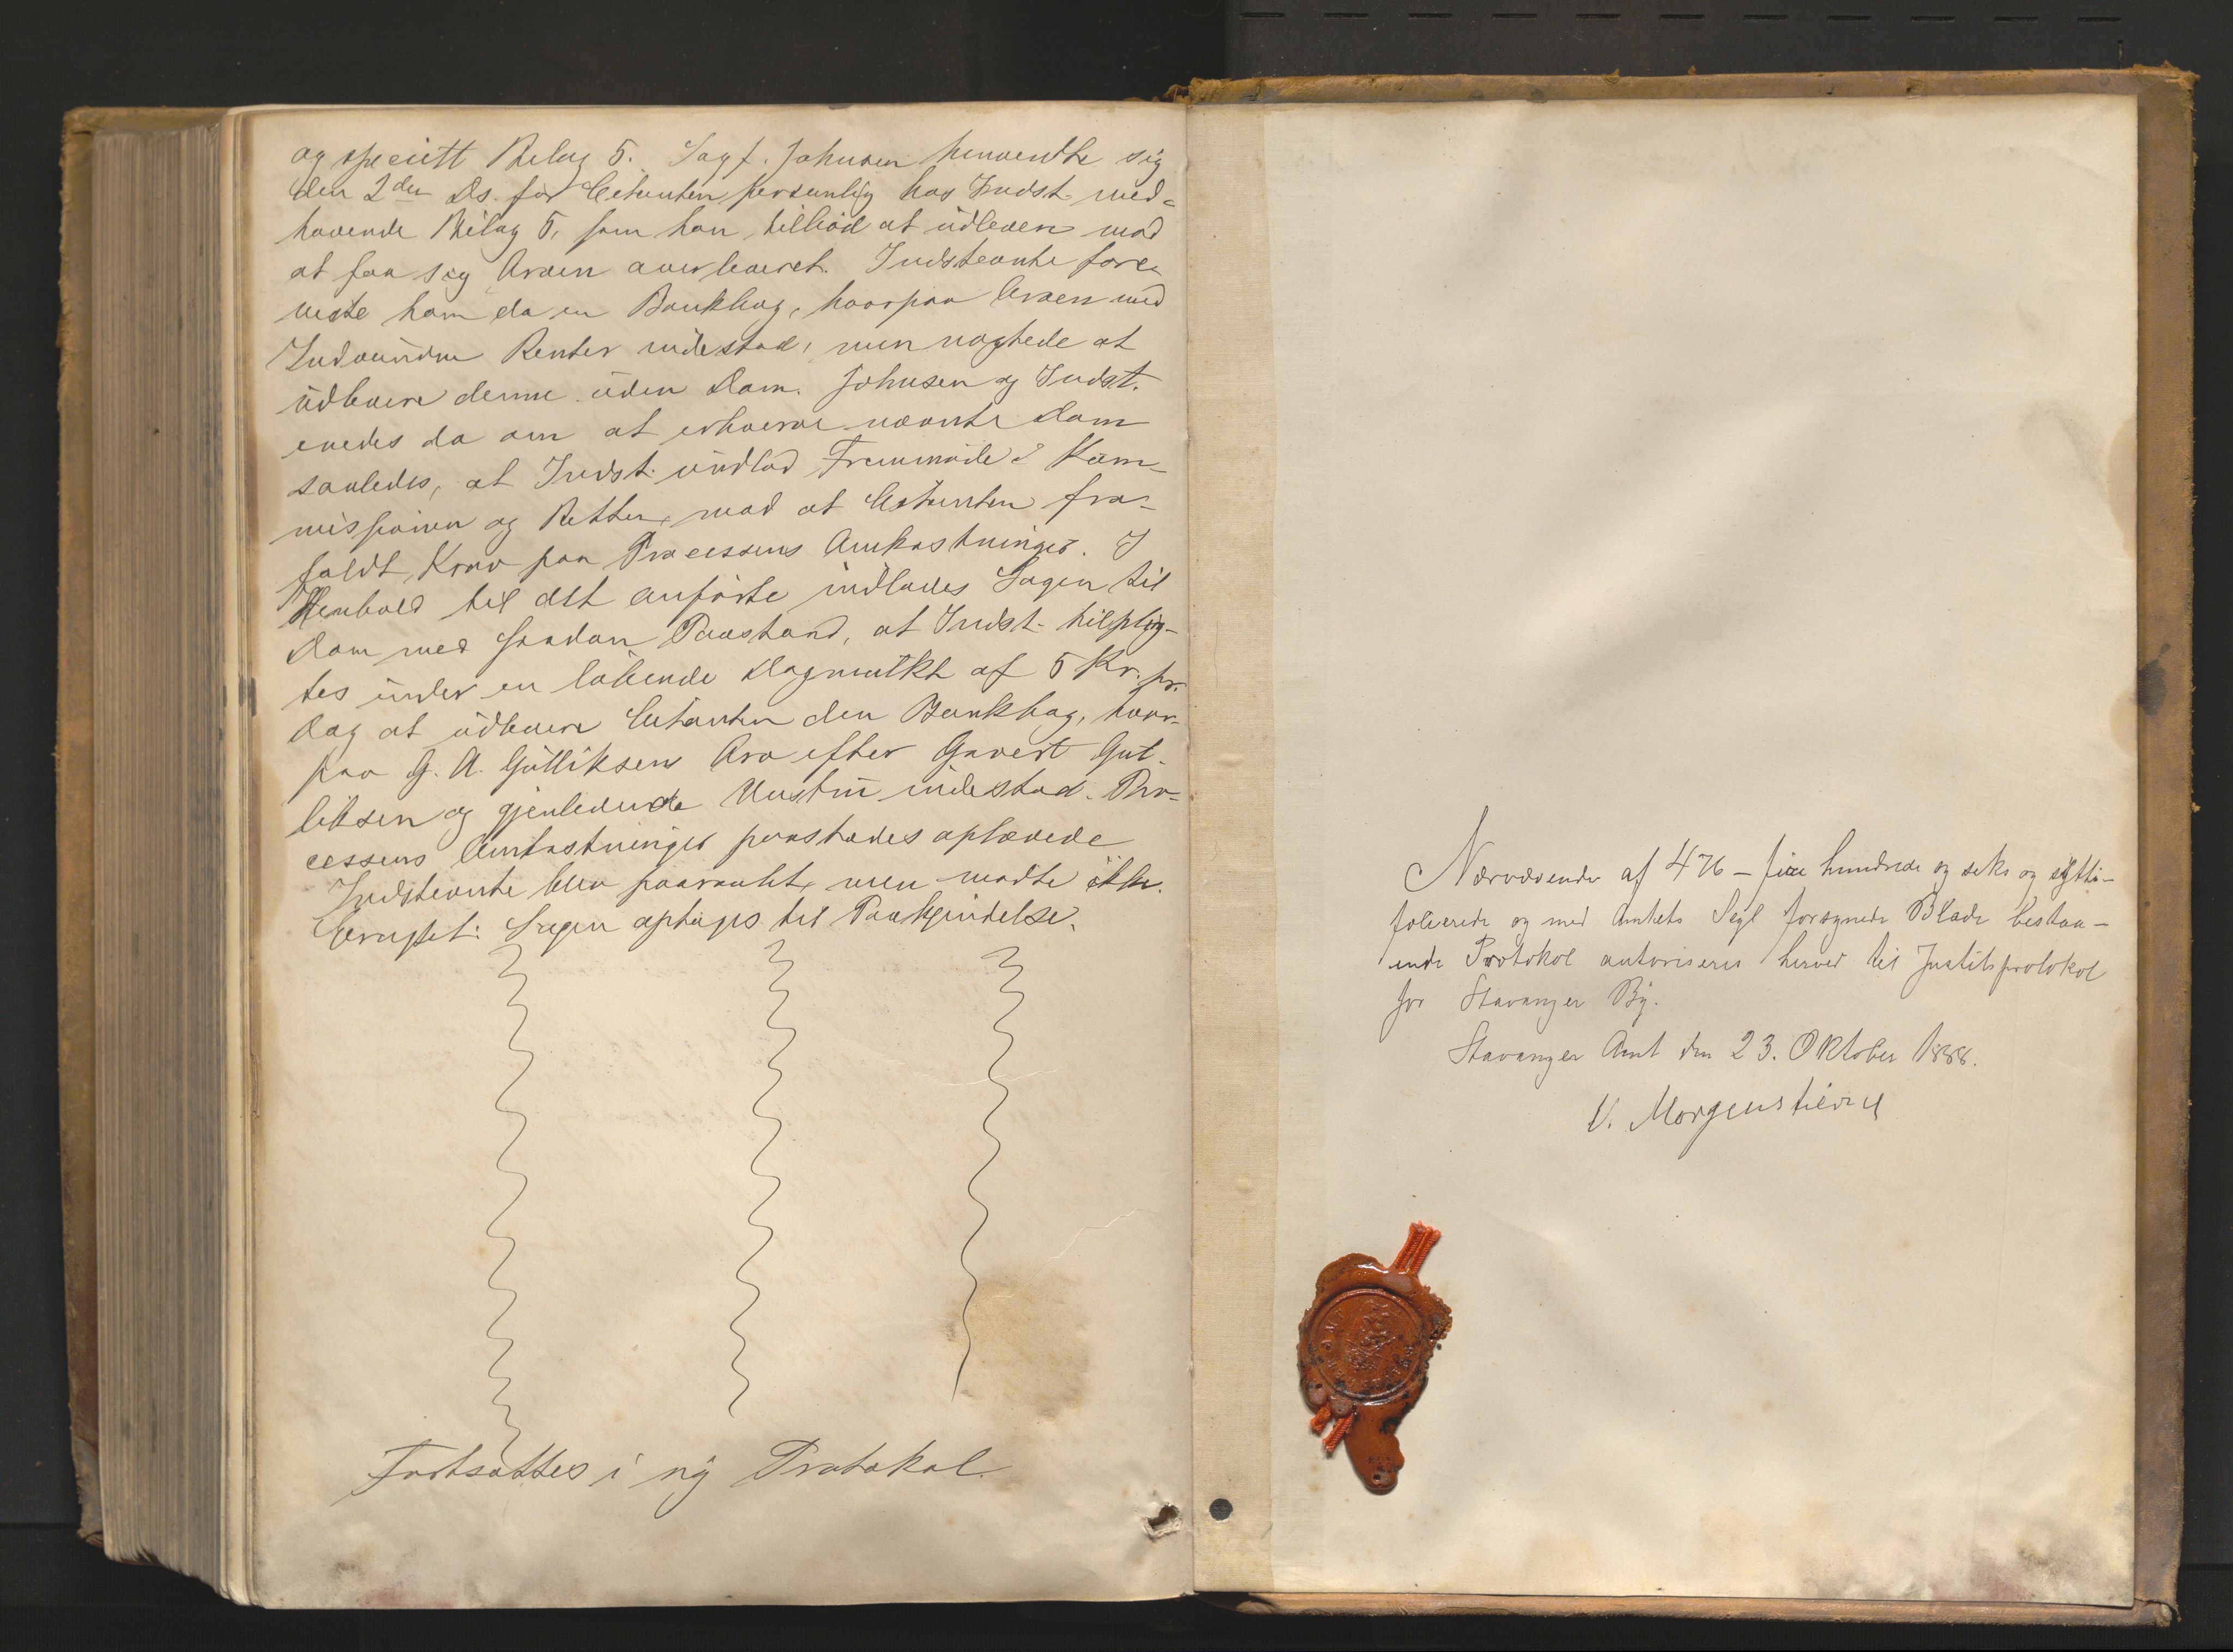 og specielt Bilag 5. Sagf. Johnsen henvendte sig
den 2den Ds. for Citanten personlig hos Indst. med-
havende Bilag 5, som han tilbød at udlevere mod
at faa sig Arven overleveret. Indstevnte fore-
viste ham da en Bankbog, hvorpaa Arven med
Indvundne Renter indestod, men nægtede at
udlevere denne uden Dom. Johnsen og Indst.
enedes da om at erhverve nævnte Dom
saaledes, at Indst. undlod Fremmøde i Kom-
missionen og Retten, mod at Citanten fra-
faldt Krav paa Processens Omkostninger. I
Henhold til det anførte indlades Sagen til
Dom med saadan Paastand, at Indst. tilplig-
tes under en løbende Dagmulkt af 5 Kr. pr.
Dag at udlevere Citanten den Bankbog, hvor-
paa G. A. Gulliksens Arv efter Gavert Gul-
liksen og gjenlevende Hustru indestod. Pro-
cessens Omkostninger paastodes ophævede
Indstevnte blev paaraabt, men mødte ikke.
Eragtet: Sagen optages til Paakjendelse.
Fortsættes i ny Protokol.
Nærværende af 476 - fire hundrede og seks og sytti-
folierede og med Amtets Segl forsynede Blade bestaa-
ende Protokol autoriseres herved til Justitsprotokol
for Stavanger By.
Stavanger Amt den 23. Oktober 1888.
V. Morgenstierne